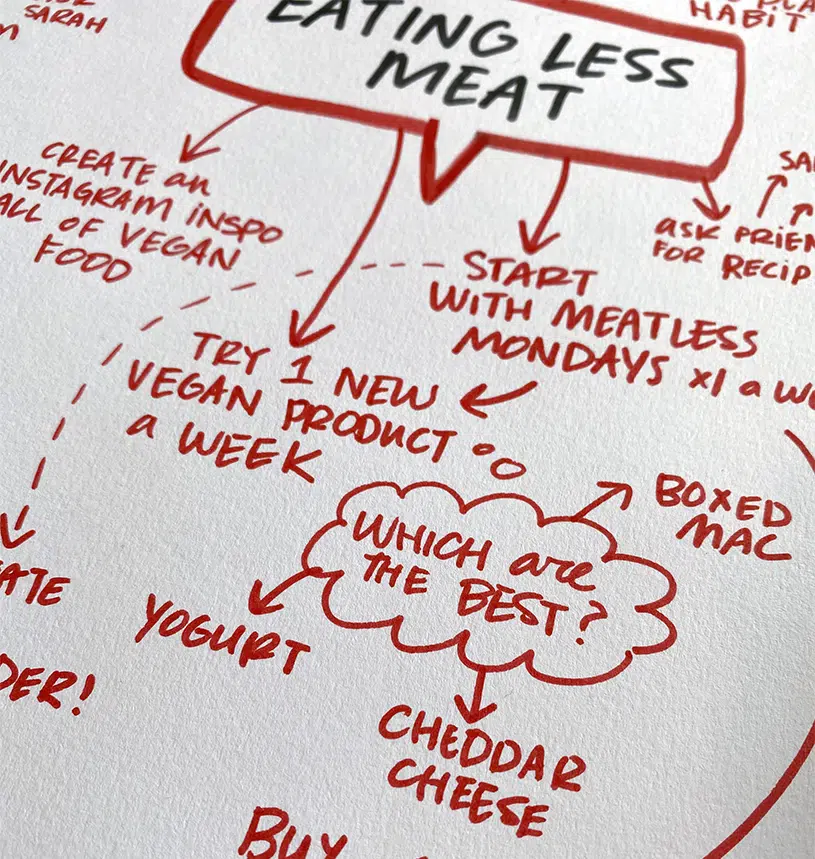 SARAH
HABIT
EATING LESS
MEAT
CREATE an
INSTAGRAM INSPO
OF VEGAN
FOOD
ASK
FOR
START
WITH MEATLESS
MONDAYS x1 a
TRY 1 NEW
VEGAN PRODUCT
a WEEK
WHICH are
THE BEST?
BOXED
MAC
YOGURT
CHEDDAR
CHEESE
BUY